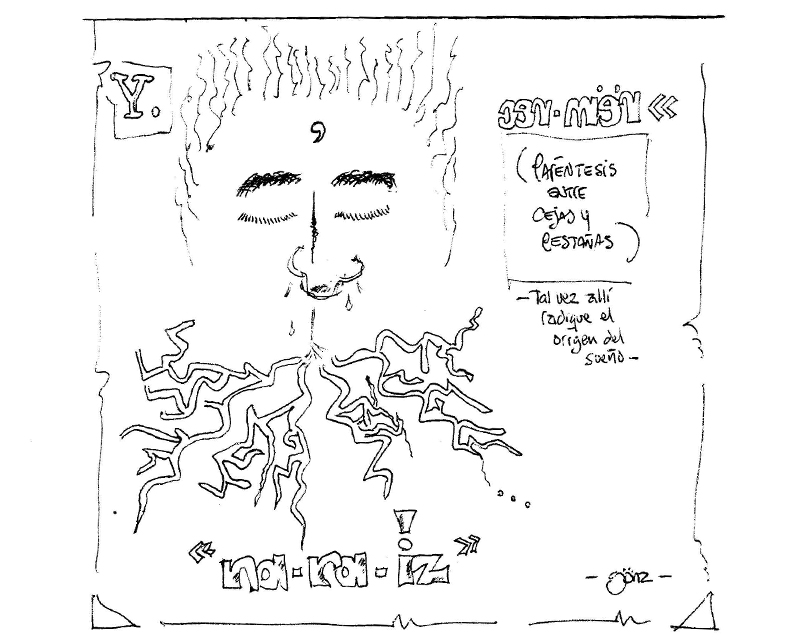 Y.
(Paréntesis
entre
cejas y
pestañas)
—Tal vez allí
radique el
origen del
sueño—
"na-ra-iz"
- gönz -